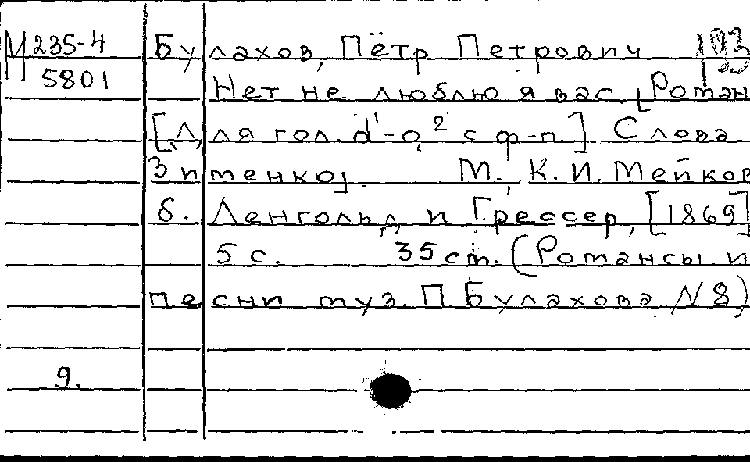 М 235-4 Булахов, Пётр Петрович 193
5801 Нет не люблю я вас. [Роман
[Для гол. d¹-a² с ф-п] Слова
Зименко]. М., К.И. Мейков
б. Ленгольд и Грессер, [1869]
5 с. 35 ст. (Романсы и
песни муз. П Булахова N 8)
9.